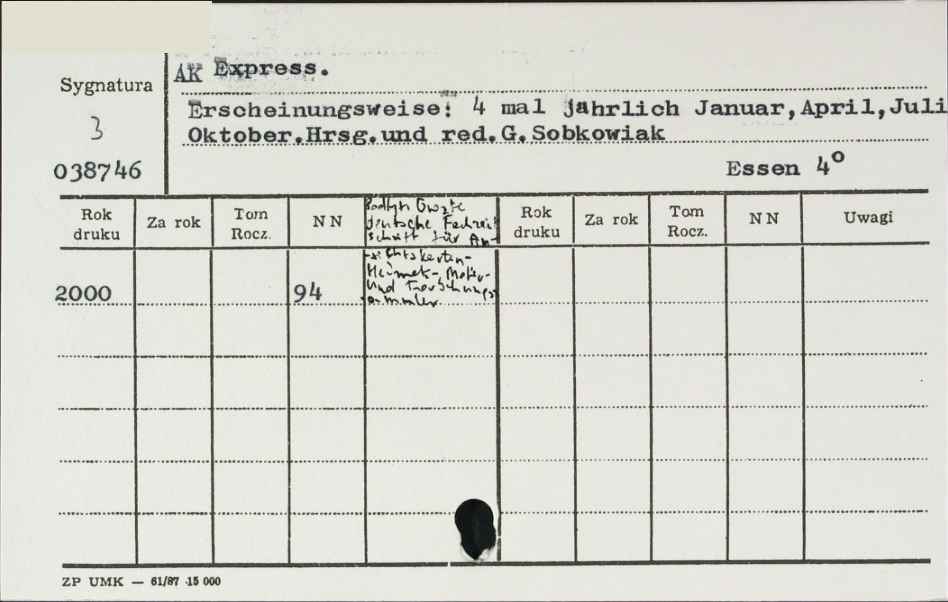 AK Express.
Sygnatura
3
038746
Erscheinungsweise: 4 mal jährlich Januar,April,Juli
Oktober.Hrsg.und red.G.Sobkowiak
Essen 4º
Rok druku Za rok Tom Rocz. NN Rok druku Za rok Tom Rocz. NN Uwagi
deutsche Fachzeit
schrift für An-
sichtskarten-
Heimat-, Motiv-
und Forschungs
sammler.
2000 94
ZP UMK — 61/87 15 000